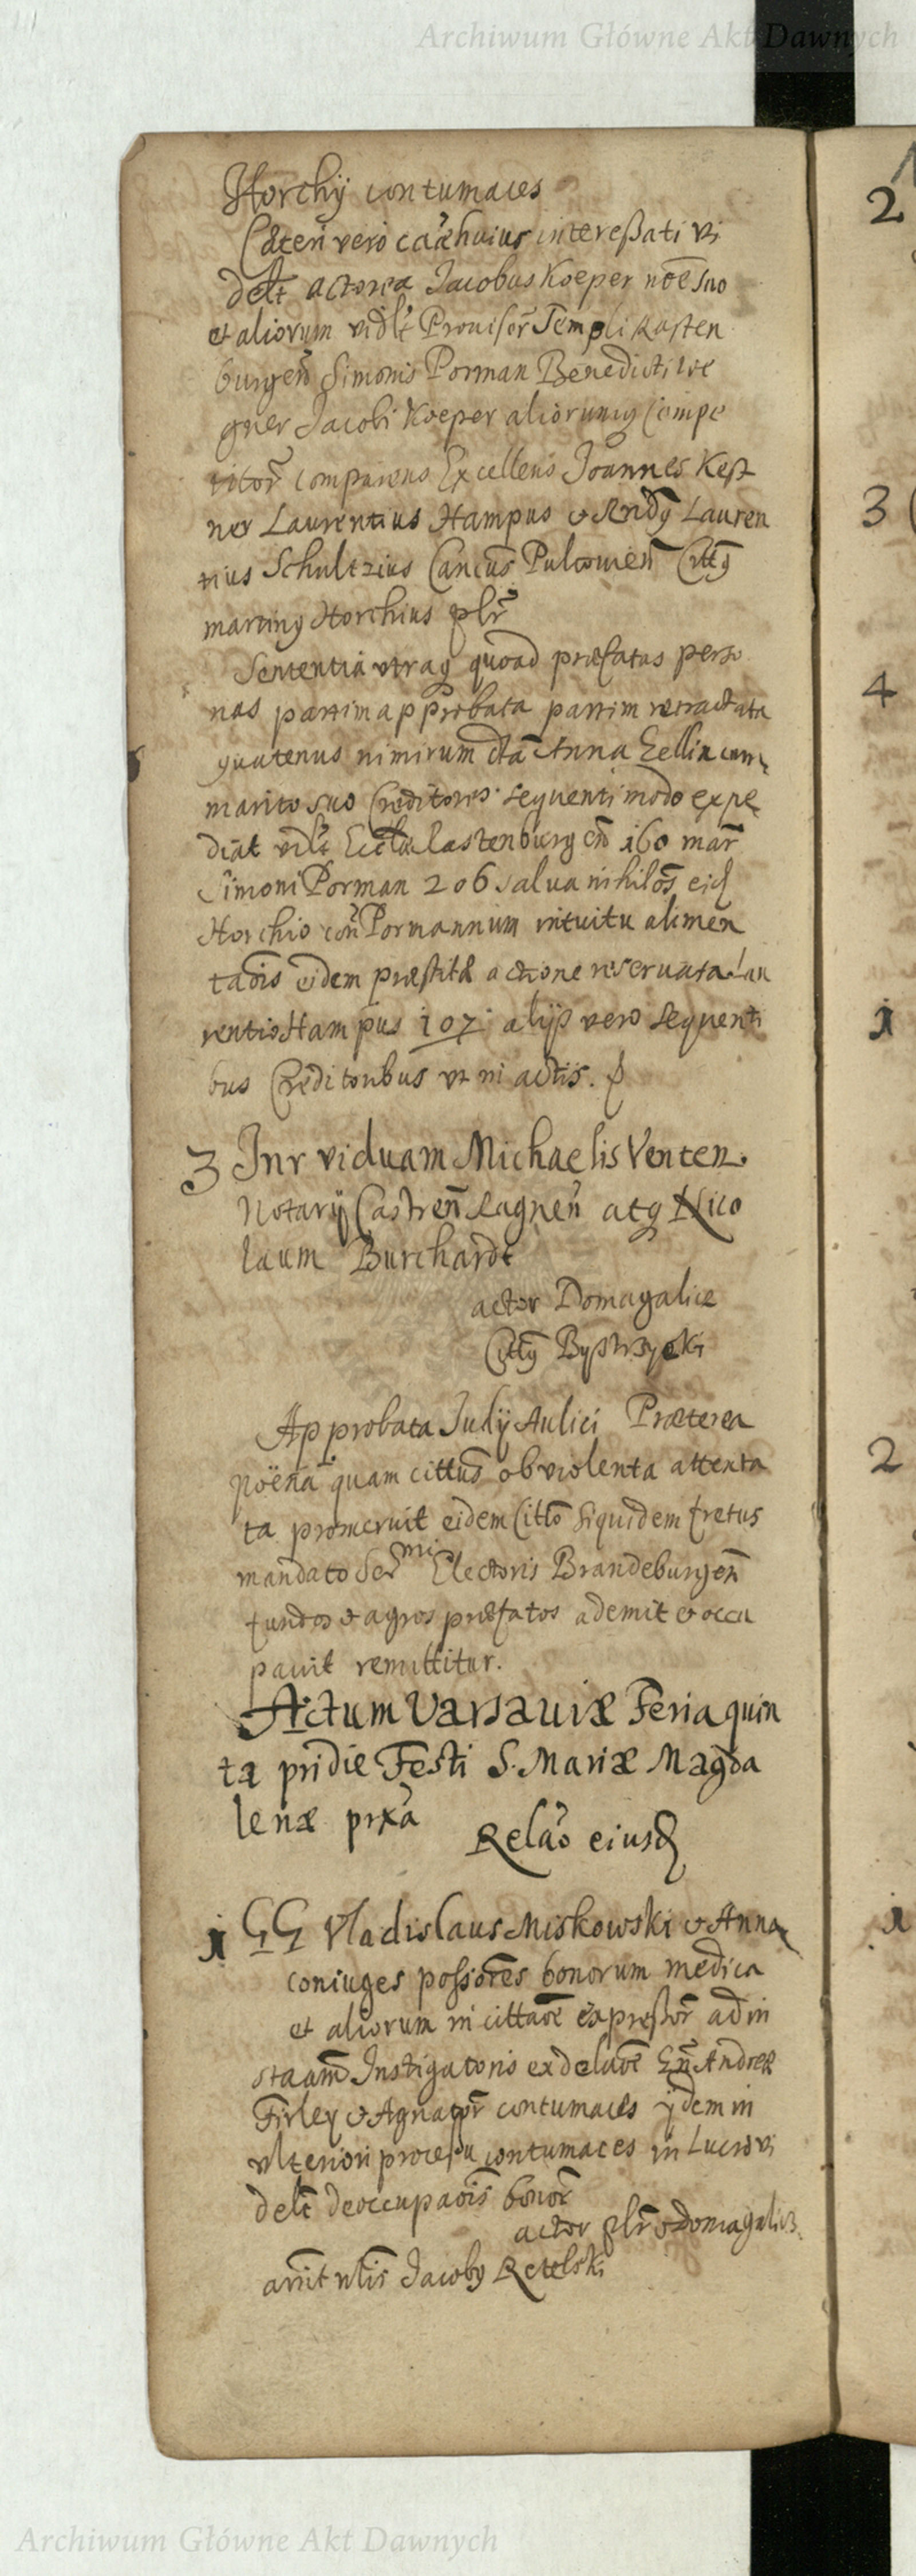 Archiwum Główne Akt Dawnych
Horchij contumaces
Cæteri vero caæ huius interessati vi
delt actorea Jacobus Koeper noe suo
et aliorum vidlt Prouisor Templi Rasten
burgen Simonis Porman Benedicti We
gner Jacobi Koeper aliorumq Compe
titor comparens Excellens Joannes Kest
ner Laurentius Hampus et Rndq Lauren
tius Schultzius Cancus Pultouien Cittq
martinq Horchius plr
Sententia utraq quoad præfatas perso
nas partim approbata partim retractata
quatenus nimirum dta Anna Zellin cum
marito suo Creditores sequenti modo expe
diat vidlt Eccla Rastenburgen 160 mar
Simoni Porman 206 salua nihilos eid
Horchio con Pormannum intuitu alimen
taois eidem præstitæ actione reseruata Lau
rentio Hampus 107 alijs vero sequenti
bus Creditoribus ut in actis.
3 Inr viduam Michaelis Venten
Notarij Castren Ragnen atq Nico
laum Burchardt
actor Domagalice
Cittq Bystrzycki
Approbata Judij Aulici Præterea
poëna quam cittus ob violenta attenta
ta promeruit eidem Citto siquidem fretus
mandato Ser mi Electoris Brandeburgen
fundos et agros præfatos ademit et occu
pauit remittitur.
Actum Varsauiæ Feria quin
ta pridie Festi S. Mariæ Magda
lenæ prxa
Relao eiusd
1 GG Vladislaus Miskowski et Anna
coniuges possores bonorum medica
et aliorum in cittaoe expressor ad in
staam Instigatoris ex delaoe Gn Andreæ
Firley et Agnator contumaces ijdem in
ulteriori processu contumaces in Lucro vi
delt deoccupaois bonor
actor plr Domagalicz
arrit nlis Jacobq Retelski
2
3
4
1
2
1
Archiwum Główne Akt Dawnych